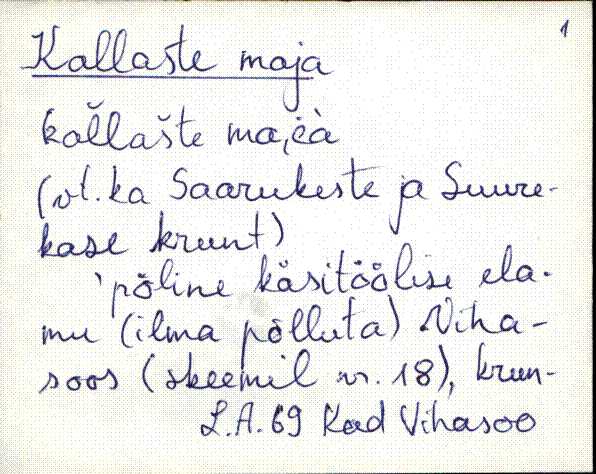 1
Kallaste maja
kal̆lašte ma,i̯à
(vt. ka Saarukeste ja Suure-
kase krunt)
'põline käsitöölise ela-
mu (ilma põlluta) Viha-
soos (skeemil nr. 18), krun-
L.A. 69 Kad Vihasoo